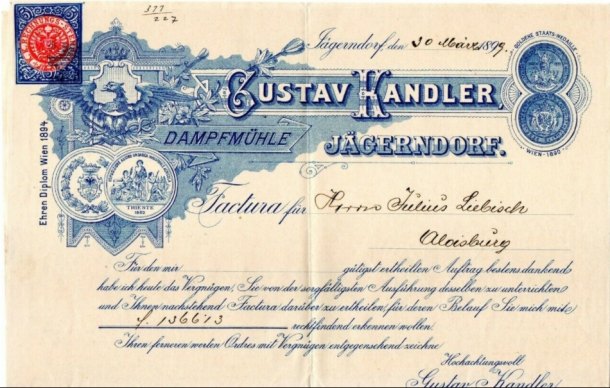 377
227
Jägerndorf, den 30 März 1899.
GUSTAV KANDLER,
DAMPFMÜHLE
JÄGERNDORF.
GOLDENE STAATS-MEDAILLE
WIEN-1890
Ehren Diplom Wien 1894
TRIESTE
1882
Factura für Herrn Julius Liebisch
Aloisburg
Für den mir gütigst ertheilten Auftrag bestens dankend
habe ich heute das Vergnügen, Sie von der sorgfältigsten Ausführung desselben zu unterrichten
und Ihnen nachstehend Factura darüber zu ertheilen, für deren Belauf Sie mich mit
f. 136613 rechtfindend erkennen wollen.
Ihren ferneren werten Ordres mit Vergnügen entgegensehend zeichne
Hochachtungsvoll
Gustav Kandler